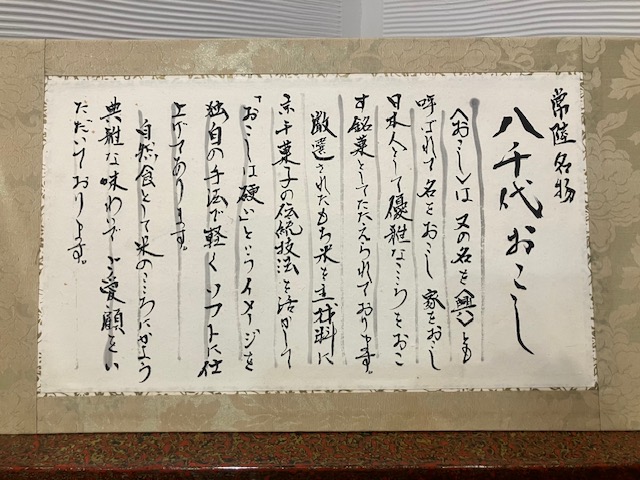 常陸名物
八千代おこし
〈おこし〉は又の名を〈興〉とも
呼ばれて名をおこし家をおこし
日本人として優雅なこころをおこ
す銘菓としてたたえられております。
厳選されたもち米を主材料に
京干菓子の伝統技法を活かして
「おこしは硬い」というイメージを
独自の手法で軽くソフトに仕
上げてあります。
自然食として米のこころにかよう
典雅な味わいでご愛顧をい
ただいております。